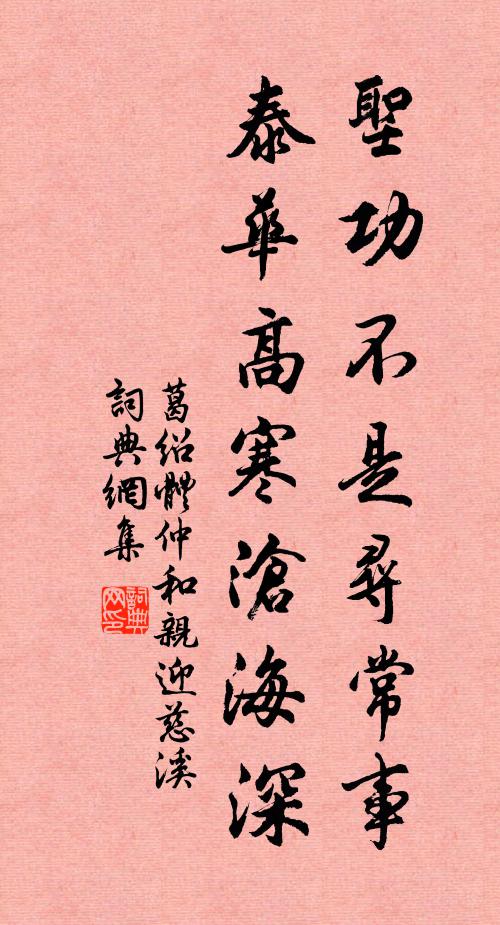 聖功不是尋常事
泰華高寒滄海深
葛紹體仲和親迎慈溪
詞典網集
詞典网印